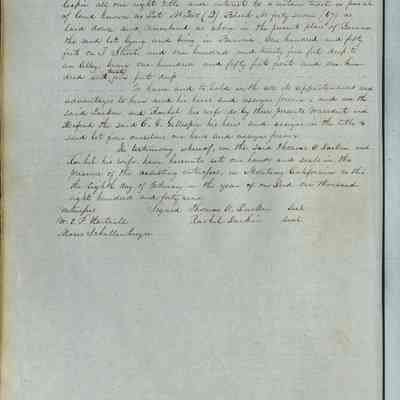 lespie all our right title and interest to a certain tract or parcel
of land known as Lot No Two (2) Block No forty seven (47) as
laid down and numbered as above in the present plan of
the said lot lying and being in one hundred and fifty
feet on I Street and one hundred and twenty five feet deep to
an alley being one hundred and fifty feet front and one hun
dred and twenty five feet deep
To have and to hold with the appurtenances and
advantages to him and his heirs and assigns forever and we the
said Larkin and Rachel his wife do by these presents warrant and
defend the said C. V. Gillespie his heirs and assigns in the title to
said lot from ourselves our heirs and assigns forever.
In testimony whereof, we the said Thomas O Larkin and
Rachel his wife have hereunto set our hands and seals in the
presence of the assisting witnesses, in Monterey California on this
the eighth day of February in the year of our Lord one thousand
eight hundred and forty nine
witnesses Signed Thomas O. Larkin seal
W. E. P. Hartnell Rachel Larkin seal